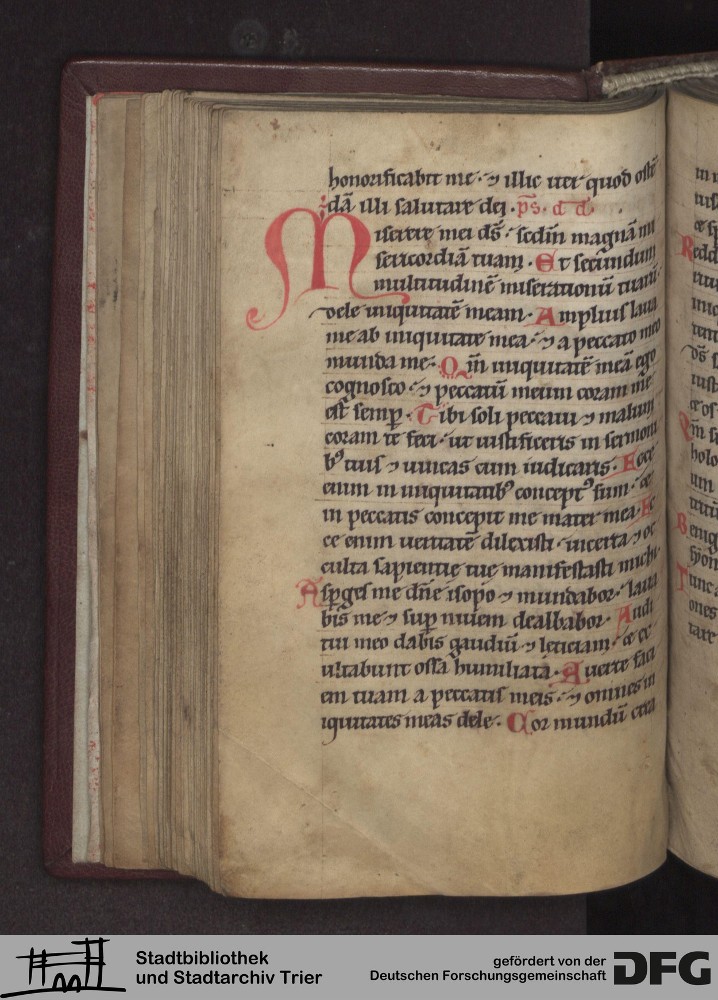 honorificabit me · ⁊ illic iter quod ostē
dā illi salutare dei · ps. d d.
Miserere mei ds̄ · scdm̄ magnā mi
sericordiā tuam · Et secundum
multitudinē miserationū tuarū
dele iniquitatē meam · Amplius laua
me ab iniquitate mea · ⁊ a peccato meo
munda me · Qm̄ iniquitatē meā ego
cognosco · ⁊ peccatū meum coram me
est semp · Tibi soli peccaui ⁊ malum
coram te feci · ut iustificeris in sermoni
bꝰ tuis ⁊ uincas cum iudicaris · Ecce
enim in iniquitatibꝰ conceptꝰ sum · et
in peccatis concepit me mater mea · Ec
ce enim ueritatē dilexisti · incerta ⁊ oc
culta sapientie tue manifestasti michi
Asperges me dn̄e isopo ⁊ mundabor · laua
bis me ⁊ sup niuem dealbabor · Audi
tui meo dabis gaudiū ⁊ leticiam · et ex
ultabunt ossa humiliata · Auerte faci
em tuam a peccatis meis · ⁊ omnes in
iquitates meas dele · Cor mundū crea
Stadtbibliothek
und Stadtarchiv Trier
gefördert von der
Deutschen Forschungsgemeinschaft
DFG